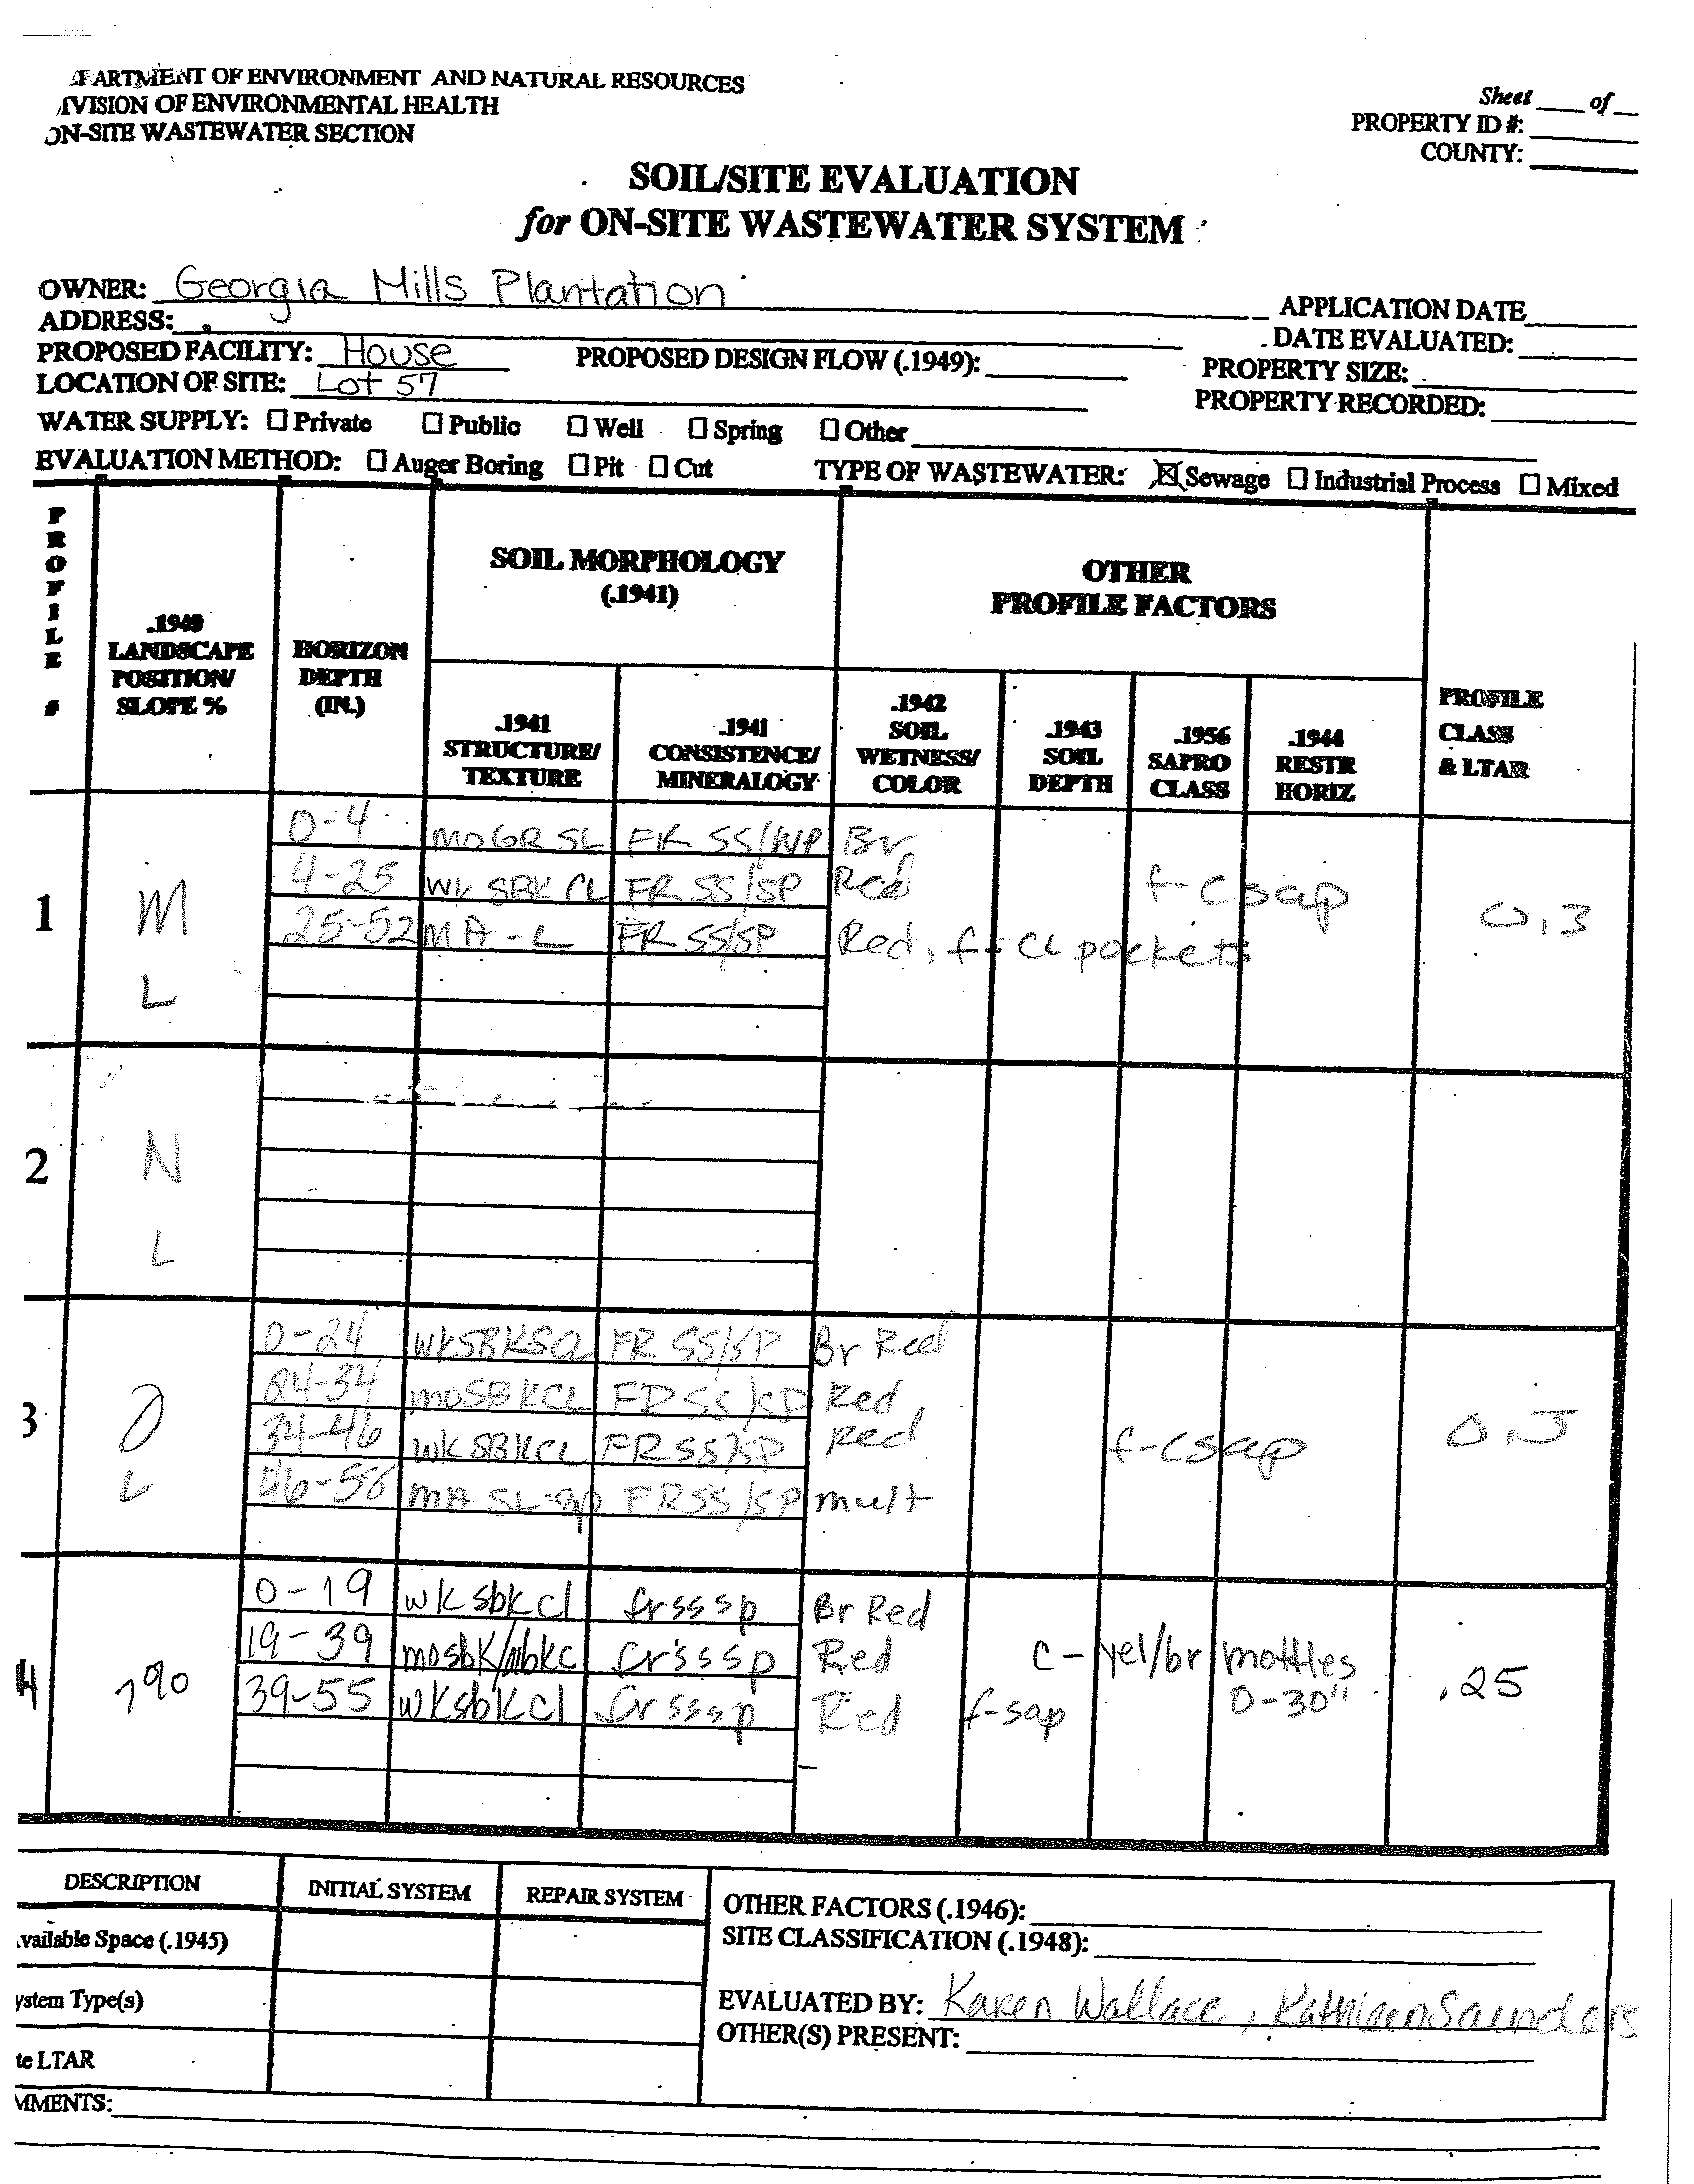 ARTMENT OF ENVIRONMENT AND NATURAL RESOURCES
IVISION OF ENVIRONMENTAL HEALTH
ON-SITE WASTEWATER SECTION
Sheet ____ of __
PROPERTY ID #:
COUNTY:
SOIL/SITE EVALUATION
for ON-SITE WASTEWATER SYSTEM
OWNER: Georgia Mills Plantation
ADDRESS:
APPLICATION DATE
PROPOSED FACILITY: House PROPOSED DESIGN FLOW (.1949): DATE EVALUATED:
LOCATION OF SITE: Lot 57 PROPERTY SIZE:
PROPERTY RECORDED:
WATER SUPPLY: ☐ Private ☐ Public ☐ Well ☐ Spring ☐ Other
EVALUATION METHOD: ☐ Auger Boring ☐ Pit ☐ Cut TYPE OF WASTEWATER: ☒ Sewage ☐ Industrial Process ☐ Mixed
PROFILE #
.1940 LANDSCAPE POSITION/ SLOPE %
HORIZON DEPTH (IN.)
SOIL MORPHOLOGY (.1941)
OTHER PROFILE FACTORS
.1941 STRUCTURE/ TEXTURE
.1941 CONSISTENCE/ MINERALOGY
.1942 SOIL WETNESS/ COLOR
.1943 SOIL DEPTH
.1956 SAPRO CLASS
.1944 RESTR HORIZ
PROFILE CLASS & LTAR
1 M L
0-4 MOGR SL FR SS/NP Br
4-25 WK SBK CL FR SS/SP Red f-c sap 0.3
25-52 MA-L FR SS/SP Red, f-CL pockets
2 N L
3 L
0-24 WKSBKSCL FR SS/SP Br Red
24-34 moSBKCL FR SS/SP Red
34-46 wkSBKCL FRSS/SP Red f-c sap 0.3
46-58 MA SL-sap FRSS/SP mult
4 790
0-19 wksbkcl frsssp Br Red
19-39 mosbk/abkc frsssp Red c- yel/br mottles
0-30" .25
39-55 wksbkcl frsssp Red f-sap
DESCRIPTION INITIAL SYSTEM REPAIR SYSTEM
vailable Space (.1945)
ystem Type(s)
te LTAR
OTHER FACTORS (.1946):
SITE CLASSIFICATION (.1948):
EVALUATED BY: Karen Wallace, Kathleen Saunders
OTHER(S) PRESENT:
MMENTS: